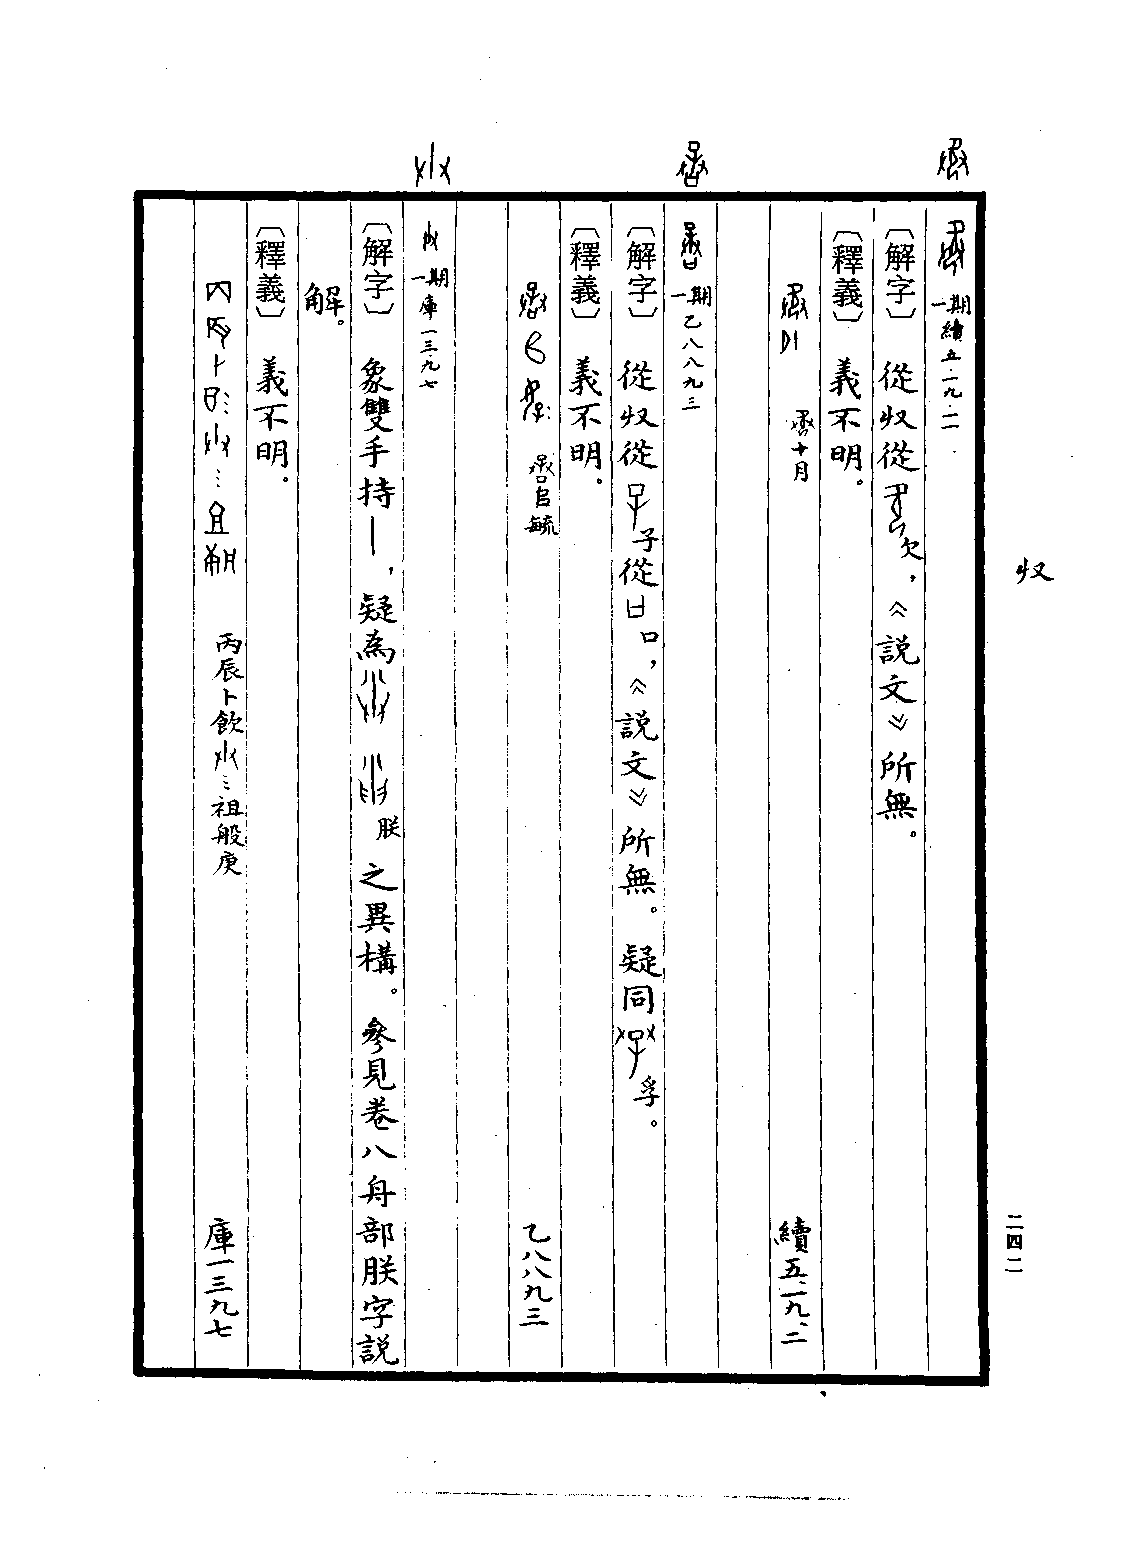 収
一期續五·一九·二
〔解字〕從収從欠,《說文》所無。
〔釋義〕義不明。
十月 續五·一九·二
一期乙八八九三
〔解字〕從収從子從口,《說文》所無。疑同孚。
〔釋義〕義不明。
毓 乙八八九三
一期庫一三九七
〔解字〕象雙手持丨,疑為朕之異構。參見卷八舟部朕字說
解。
〔釋義〕義不明。
丙辰卜飲祖般庚 庫一三九七
二四二